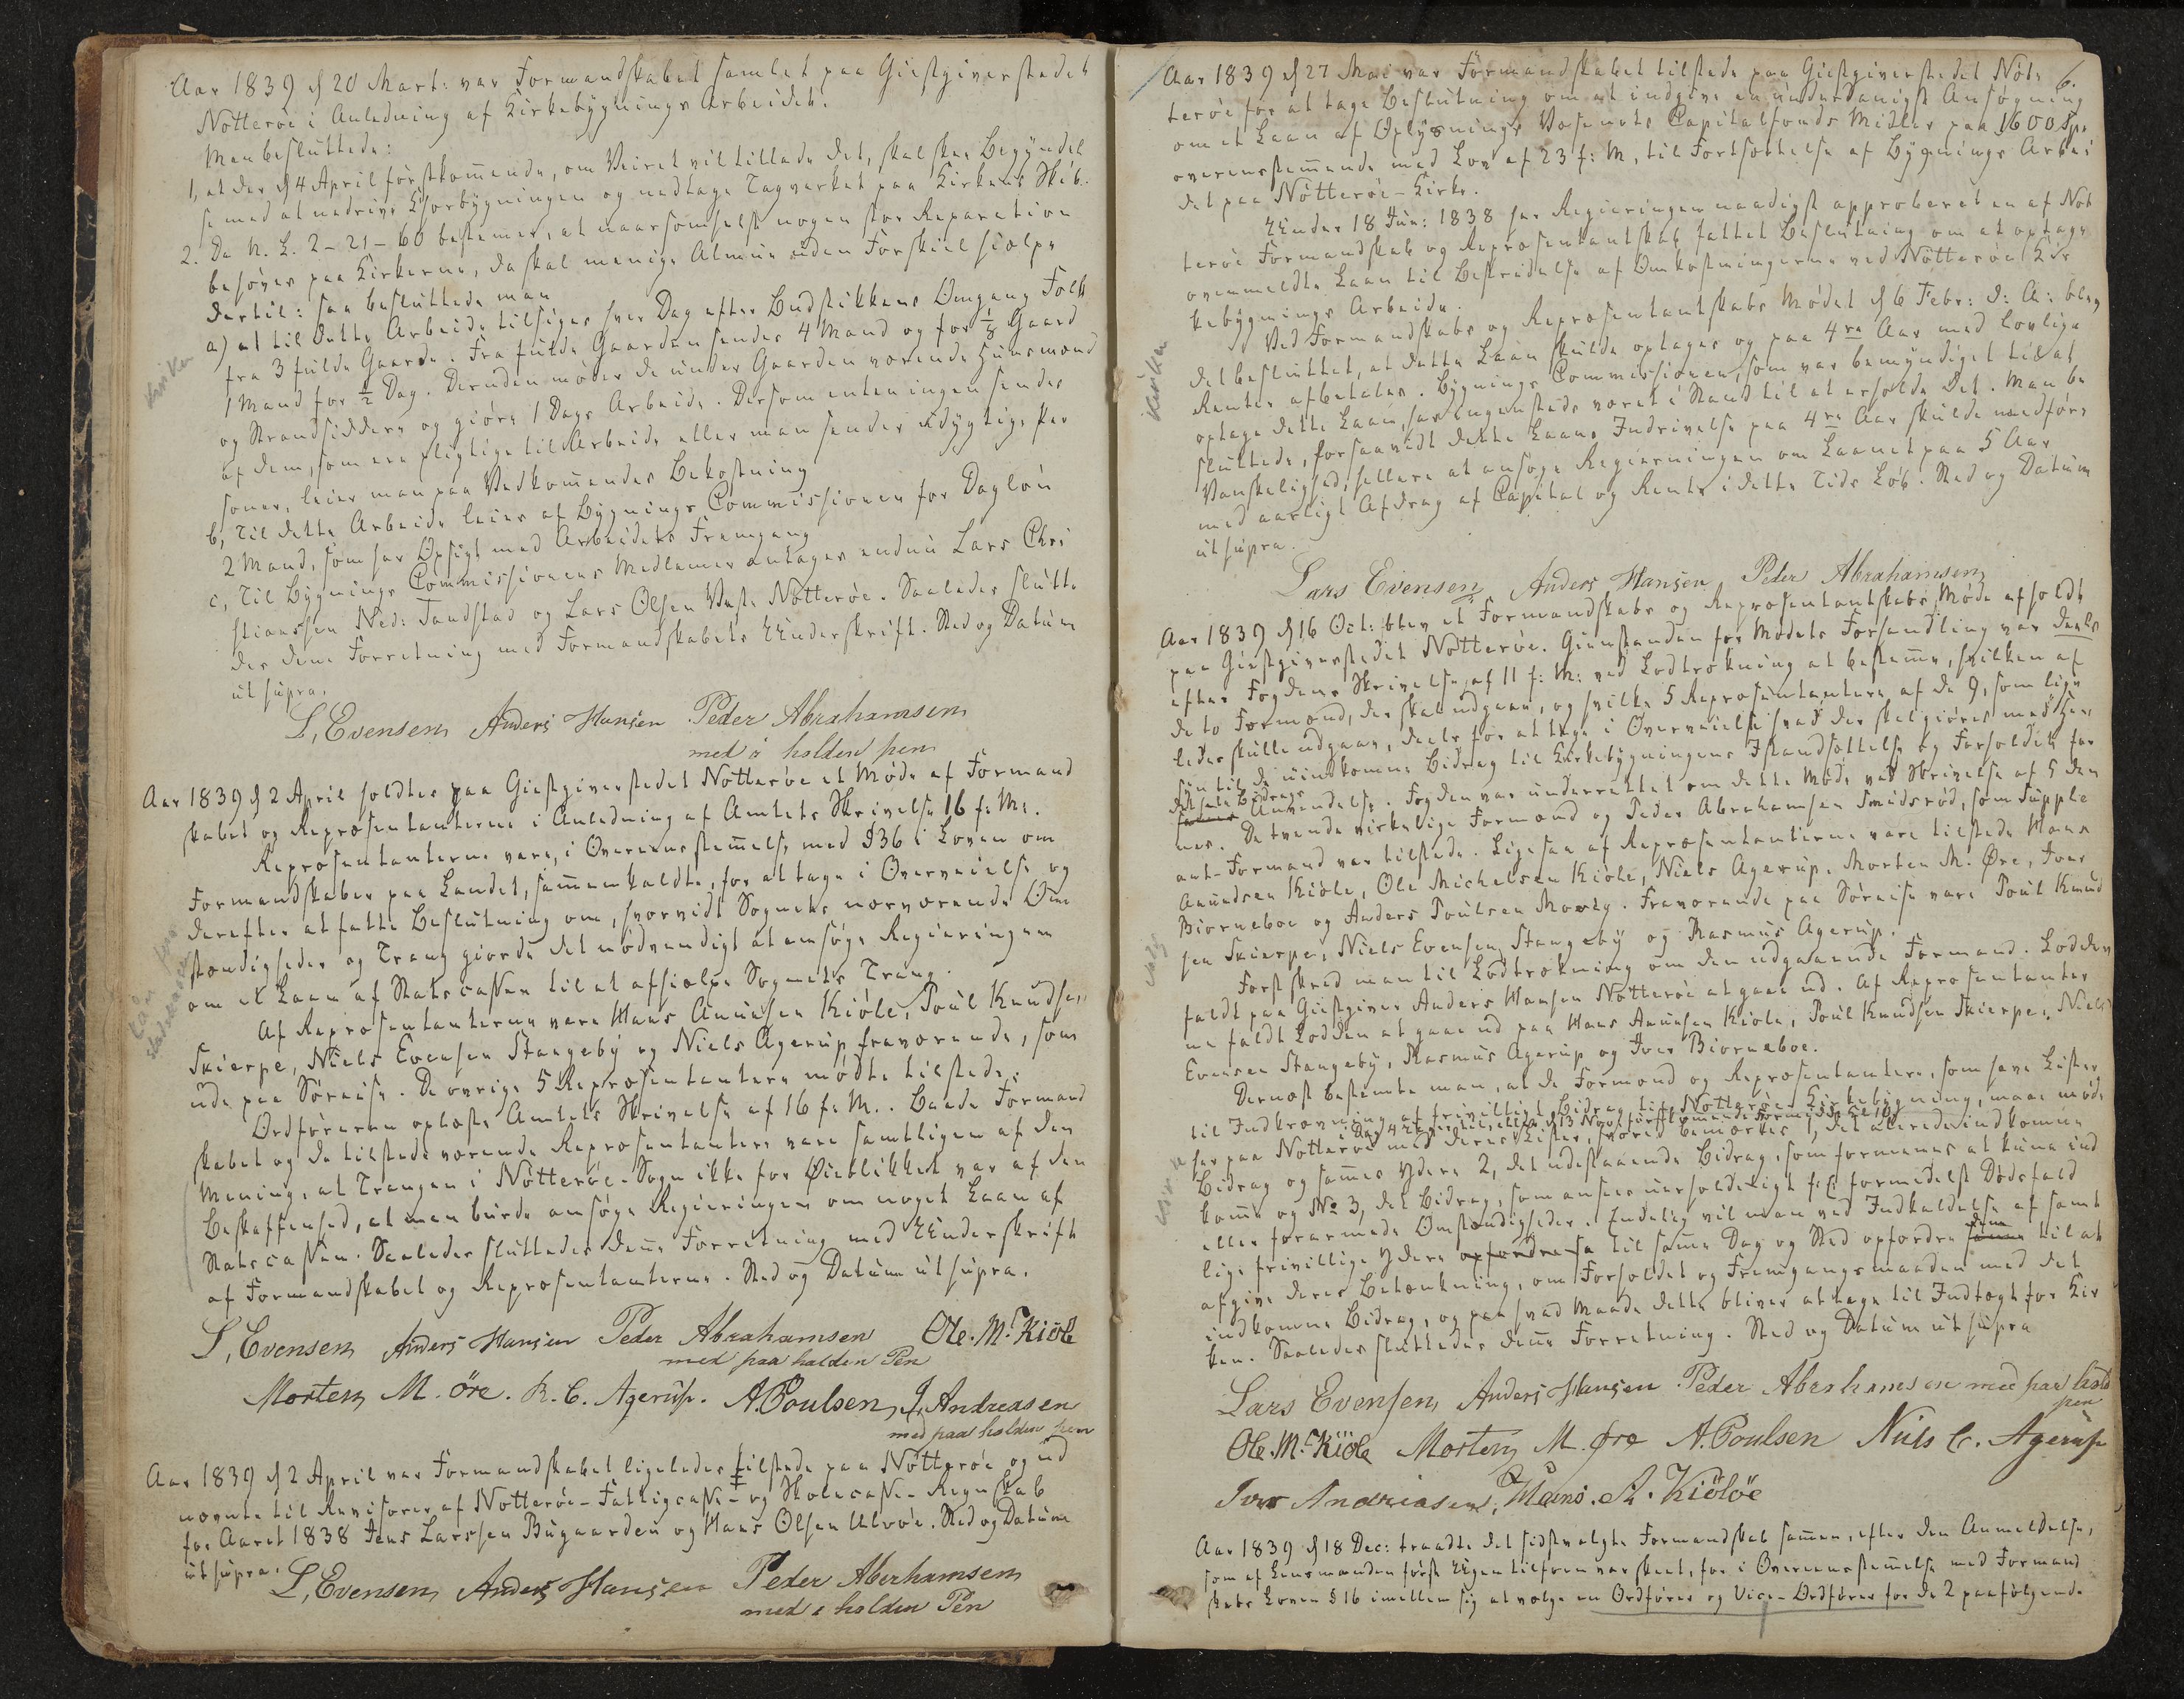 Aar 1839 d 20 Mart: var Formandskabet samlet paa Giestgiverstedet
Nøtterøe i Anledning af Kirkebygnings Arbeidet.
Man besluttede:
1, at der d 4 April førstkom̅ende, om Veiret vil tillade det, skal skee Begyndel
se med at nedrive Chorbygningen og nedtage Tagverket paa Kirkens Skib.
2. Da N. L. 2-21-60 bestemer, at naarsomhelst nogen stor Reparation
behøves paa Kirkerne, da skal menige Almue uden Forskiel hielpe
dertil: saa besluttede man
a) at til dette Arbeide tilsiges hver Dag efter Budstikkens Omgang Folk
fra 3 fulde Gaarde. Fra fulde Gaarden sendes 4 Mand og for ⅛ Gaard
Kirken
1 Mand for ½ Dag. Desuden møder de under Gaarden værende Huusmænd
og Strandsiddere og giøre 1 Dags Arbeide. Dersom enten ingen sendes
af dem, som ere pligtige til Arbeide eller man sender udygtige Per
soner, leier man paa Vedkom̅endes Bekostning
b, Til dette Arbeide leies af Bygnings Commissionen for Dagløn
2 Mand, som har Opsigt med Arbeidets Fremgang
c, Til Bygnings Commissionens Medlemer antages endnu Lars Chri
stianssen Ned: Tandstad og Lars Olsen Vest Nøtterøe. Saaledes slutte
des den̅e Forretning med Formandskabets Underskrift. Sted og Datum
ut supra.
L, Evensen Anders Hansen Peder Abrahamsen
med i holden pen
Aar 1839 d 2 April holdtes paa Giestgiverstedet Nøtterøe et Møde af Formand
skabet og Repræsentanterne i Anledning af Amtets Skrivelse 16 f: M:.
Repræsentanterne vare, i Overeensstem̅else med § 36 i Loven om
Formandskaber paa Landet, sam̅enkaldte, for at tage i Overveielse og
derefter at fatte Beslutning om, hvorvidt Sognets nærværende Om
stændigheder og Trang giorde det nødvendigt at ansøge Regieringen
Lån fra
statscassen
om et Laan af Statscassen til at afhielpe Sognets Trang.
Af Repræsentanterne vare Hans Anunsen Kiøle, Poul Knudsen
Skierpe, Niels Evensen Stangeby og Niels Agerup fraværende, som
ude paa Søreise. De øvrige 5 Repræsentantere mødte tilstede.
Ordføreren oplæste Amtets Skrivelse af 16 f: M.. Baade Formand
skabet og de tilstedeværende Repræsentantere vare samtligen af den
Mening, at Trangen i Nøtterøe-Sogn ikke for Øieblikket var af den
Beskaffenhed, at man burde ansøge Regieringen om noget Laan af
Statscassen. Saaledes sluttedes den̅e Forretning med Underskrift
af Formandskabet og Repræsentanterne. Sted og Datum ut supra.
L, Evensen Anders Hansen Peder Abrahamsen Ole. M. Kiøle
med paa holden Pen
Morten M. Øre. R. C. Agerup. A. Poulsen, J, Andreasen
med paa holden pen
Aar 1839 d 2 April var Formandskabet ligeledes tilstede paa Nøtterøe og ud
nævnte til Revisorer af Nøtterøe-Fattigcasse- og Skolecasse-Regnskab
for Aaret 1838 Jens Larssen Bugaarden og Hans Olsen Ulvøe. Sted og Datum
ut supra.
L, Evensen Anders Hansen Peder Aberhamsen
med i holden Pen
6.
Aar 1839 d 27 Mai var Formandskabet tilstede paa Giestgiverstedet Nøt-
terøe for at tage Beslutning om at indgive en underdanigst Ansøgning
om et Laan af Oplysnings Væsenets Capitalfonds Midler paa 1600 Spe
overensstem̅ende med Lov af 23 f: M, til Fortsættelse af Bygnings Arbei
det paa Nøtterøe-Kirke.
Under 18 Jun: 1838 har Regieringen naadigst approberet en af Nøt
terøe Formandskab og Repræsentantskab fattet Beslutning om at optage
ovenmeldte Laan til Bestridelse af Omkostningerne ved Nøtterøe Kir
kebygnings Arbeide.
Ved Formandskabs og Repræsentantskabs Mødet d 6 Febr: d: A: blev
Kirken
det besluttet, at dette Laan skulde optages og paa 4re Aar med lovlige
Renter afbetales. Bygnings Commissionen, som var bemyndiget til at
optage dette Laan, har ingensteds været i Stand til at erholde det. Man be
sluttede, forsaavidt dette Laans Inddrivelse paa 4re Aar skulde medføre
Vanskelighed, hellere at ansøge Regieringen om Laanet paa 5 Aar
med aarligt Afdrag af Capital og Rente i dette Tids Løb. Sted og Datum
ut supra.
Lars Evensen Anders Hansen Peder Abrahamsen
Aar 1839 d 16 Oct: blev et Formandskabs og Repræsentantskabs Møde afholdt
paa Giestgiverstedet Nøtterøe. Gienstanden for Mødets Forhandling var deels
efter Fogdens Skrivelse af 11 f: M: ved Lodtrækning at bestem̅e, hvilken af
de to Formænd, der skal udgaae, og hvilke 5 Repræsentantere af de 9, som lige
ledes skulle udgaae, deels for at tage i Overveielse hvad der skal giøres med Hen
syn til de uindkomne Bidrag til Kirkebygningens Istandsættelse og Forholdet for
det hele Bidrags
sam̅es Anvendelse. Fogden var underrettet om dette Møde ved Skrivelse af 5 den
nes. De tvende virkelige Formænd og Peder Abrahamsen Smidsrød, som Supple
ant-Formand var tilstede. Ligesaa af Repræsentanterne vare tilstede Hans
Anundsen Kiøle, Ole Michelsen Kiøle, Niels Agerup, Morten M. Øre, Iver
Biørneboe og Anders Poulsen. Fraværende paa Søreise vare Poul Knud
sen Skierpe, Niels Evensen Stangeby og Rasmus Agerup.
valg
Først skred man til Lodtrækning om den udgaaende Formand. Lodden
faldt paa Giestgiver Anders Hansen Nøtterøe at gaae ud. Af Repræsentanter
ne faldt Lodden at gaae ud paa Hans Anunsen Kiøle, Poul Knudsen Skierpe, Niels
Evensen Stangeby, Rasmus Agerup og Iver Biørneboe.
Dernæst bestemte man, at de Formænd og Repræsentantere, som have Lister
til Indkrævning af frivilligt Bidrag til Nøtterøes Kirkebygning, maae møde
her paa Nøtterøe med deres Lister, hvorved bemærkes 1, det allerede indkomne
Bidrag og sam̅es Ydere 2, det udestaaende Bidrag, som formenes at kun̅e ind
kom̅e og No 3, det Bidrag, som ansees uerholdeligt f: E: formedelst Dødsfald
eller forarmede Omstændigheder. Endelig vil man ved Indkaldelse af samt
lige frivillige Ydere til sam̅e Dag og Sted opfordre dem til at
afgive deres Betænkning, om Forholdet og Fremgangsmaaden med det
indkomne Bidrag, og paa hvad Maade dette bliver at tage til Indtægt for Kir
ken. Saaledes sluttedes den̅e Forretning. Sted og Datum ut supra
Lars Evensen, Anders Hansen Peder Abrahamsen med paa hold
pen
Ole. M. Kiøle Morten M. Øre A. Poulsen Niels C. Agerup
Iver Andreasen, Hans. A. Kiøløe
Aar 1839 d 18 Dec: traadte det sidstvalgte Formandskab sam̅en, efter den Anmeldelse,
som af Lensmanden først Ugen tilforn var skeet, for i Overeensstem̅else med Formand
skabs Loven § 16 imellem sig at vælge en Ordfører og Vice-Ordfører for de 2 paafølgende